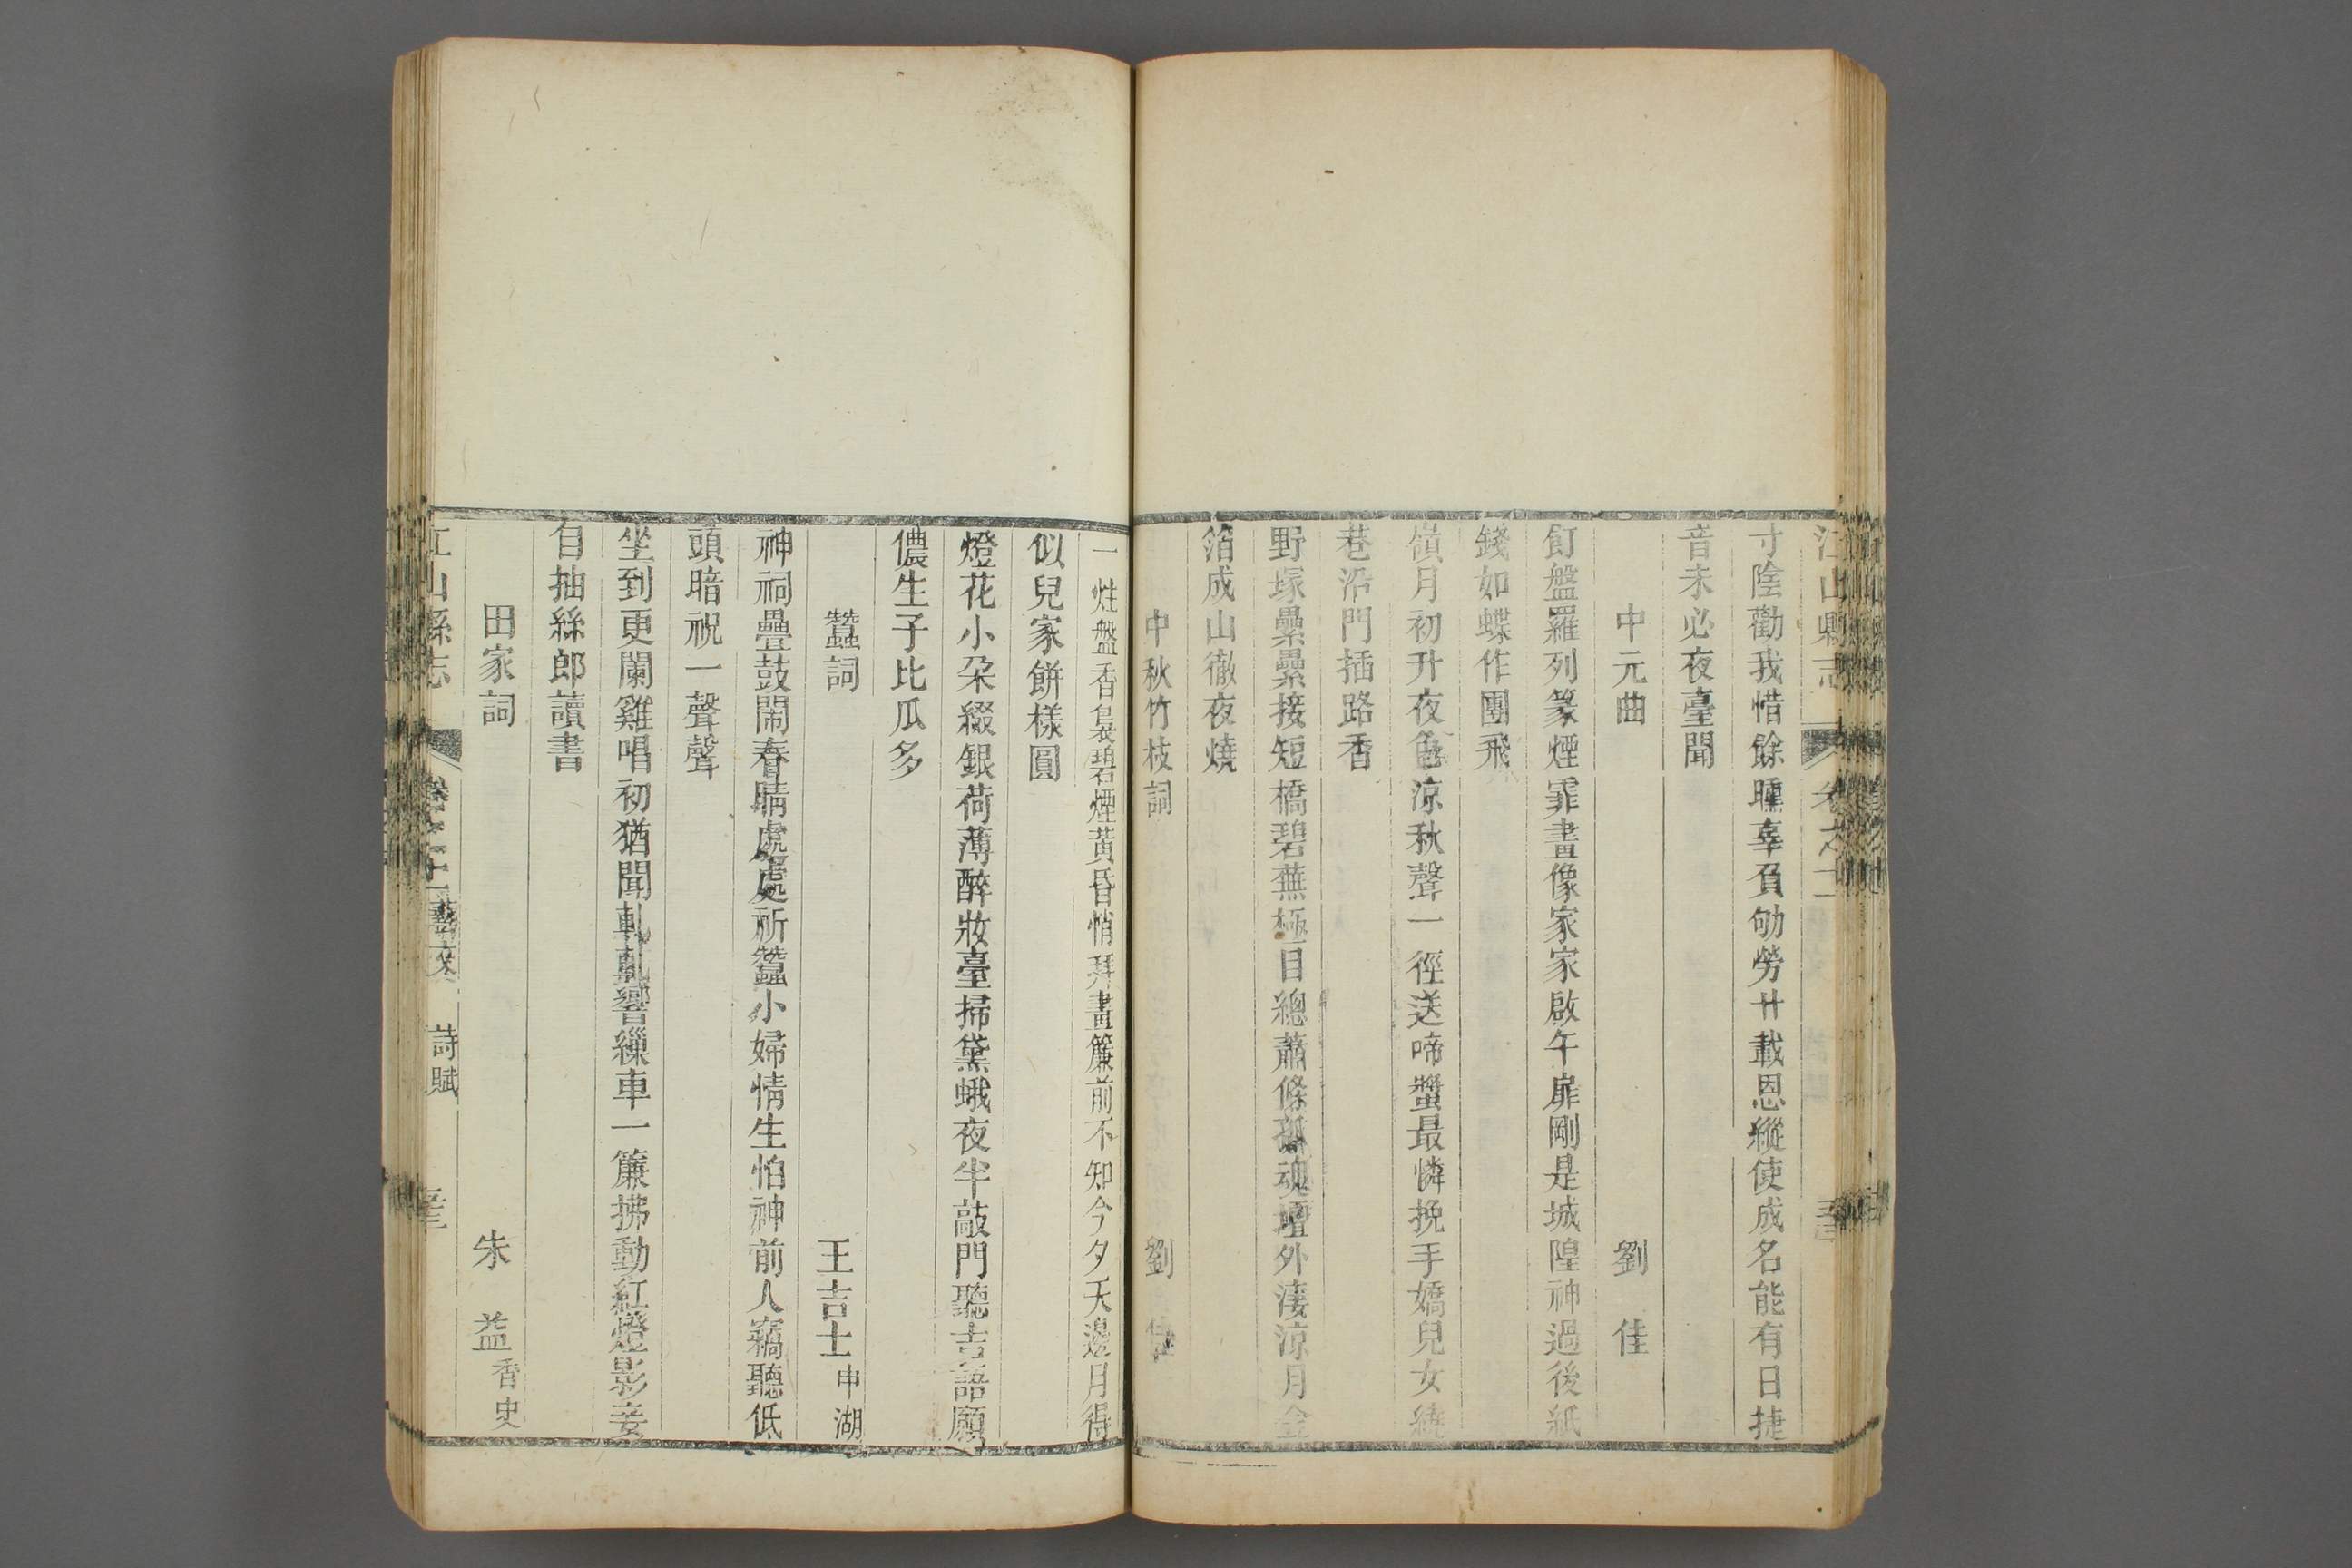 江山縣志
寸陰勸我惜餘曛辜負劬勞廿載恩縱使成名能有日捷
音未必夜臺聞
中元曲 劉佳
飣盤羅列篆煙霏畫像家家啟午扉剛是城隍神過後紙
錢如蝶作團飛
嶺月初升夜色涼秋聲一徑送啼螿最憐挽手嬌兒女繞
巷沿門插路香
野塚纍纍接短橋碧蕪極目總蕭條孤魂壇外淒涼月金
箔成山徹夜燒
中秋竹枝詞 劉佳
一炷盤香裊碧煙黃昏悄拜畫簾前不知今夕天邊月得
似兒家餅樣圓
燈花小朶綴銀荷薄醉妝臺掃黛蛾夜半敲門聽吉語願
儂生子比瓜多
蠶詞 王吉士申湖
神祠疊鼓鬧春晴處處祈蠶小婦情生怕神前人竊聽低
頭暗祝一聲聲
坐到更闌雞唱初猶聞軋軋響繅車一簾拂動紅燈影妾
自抽絲郎讀書
田家詞 朱益香史
江山縣志 卷之十一藝文 詩賦